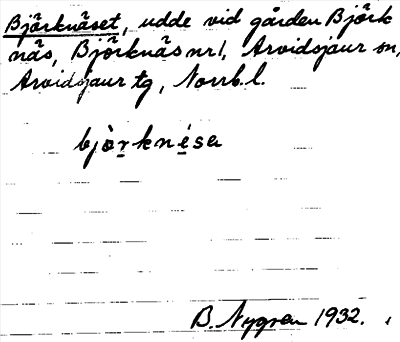 Björknäset, udde vid gården Björk
näs, Björknäs nr 1, Arvidsjaur sn,
Arvidsjaur tg, Norrb. l.
bjò̤rknésa
B. Nygren 1932.